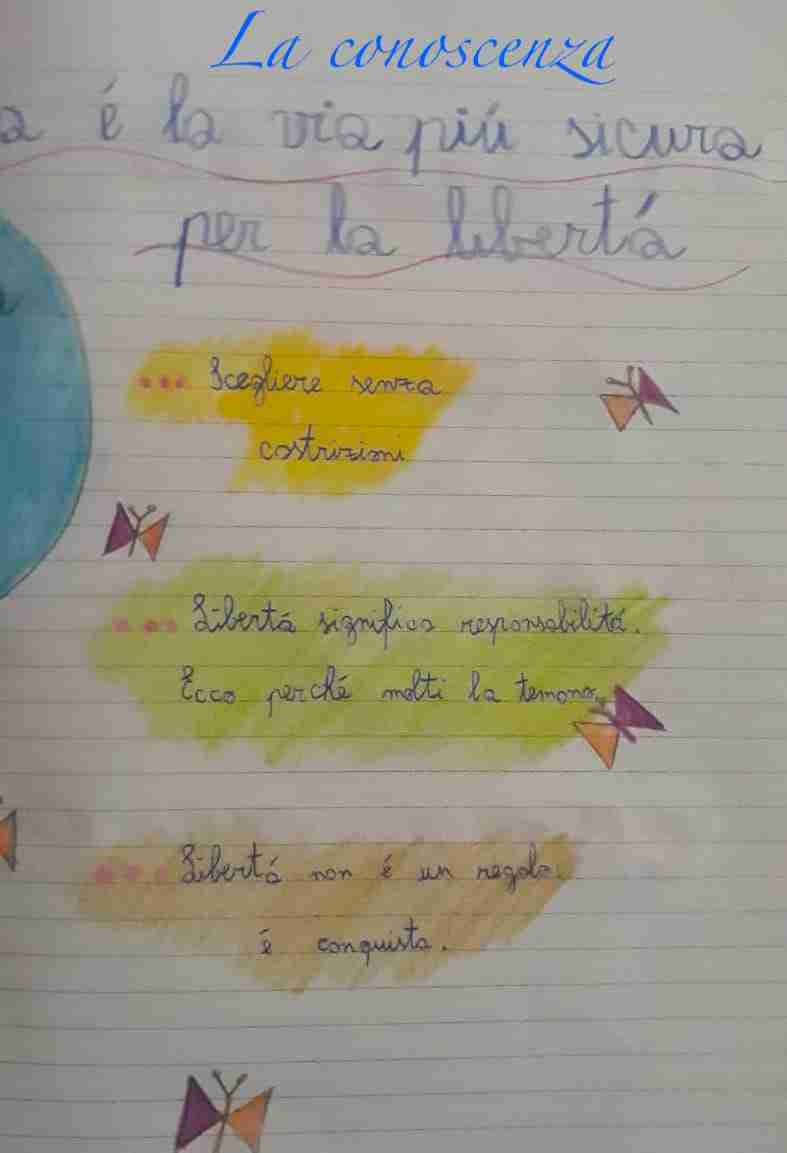 La conoscenza
a é la via piú sicura
per la libertá
... Scegliere senza
costrizioni
... Libertá significa responsabilitá.
Ecco perché molti la temono.
... Libertá non é un regalo.
é conquista.